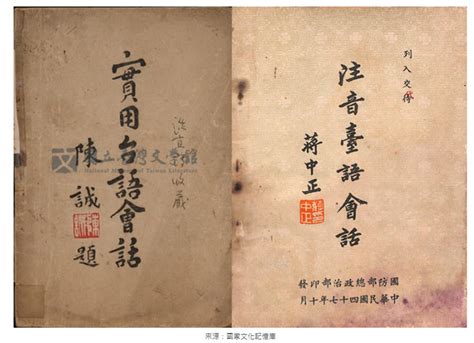 實用台語會話
陳誠題
National Museum of Taiwan Literature
列入交
注音臺語會話
蔣中正
國防部總政治部印發
中華民國四十七年十月
來源：國家文化記憶庫